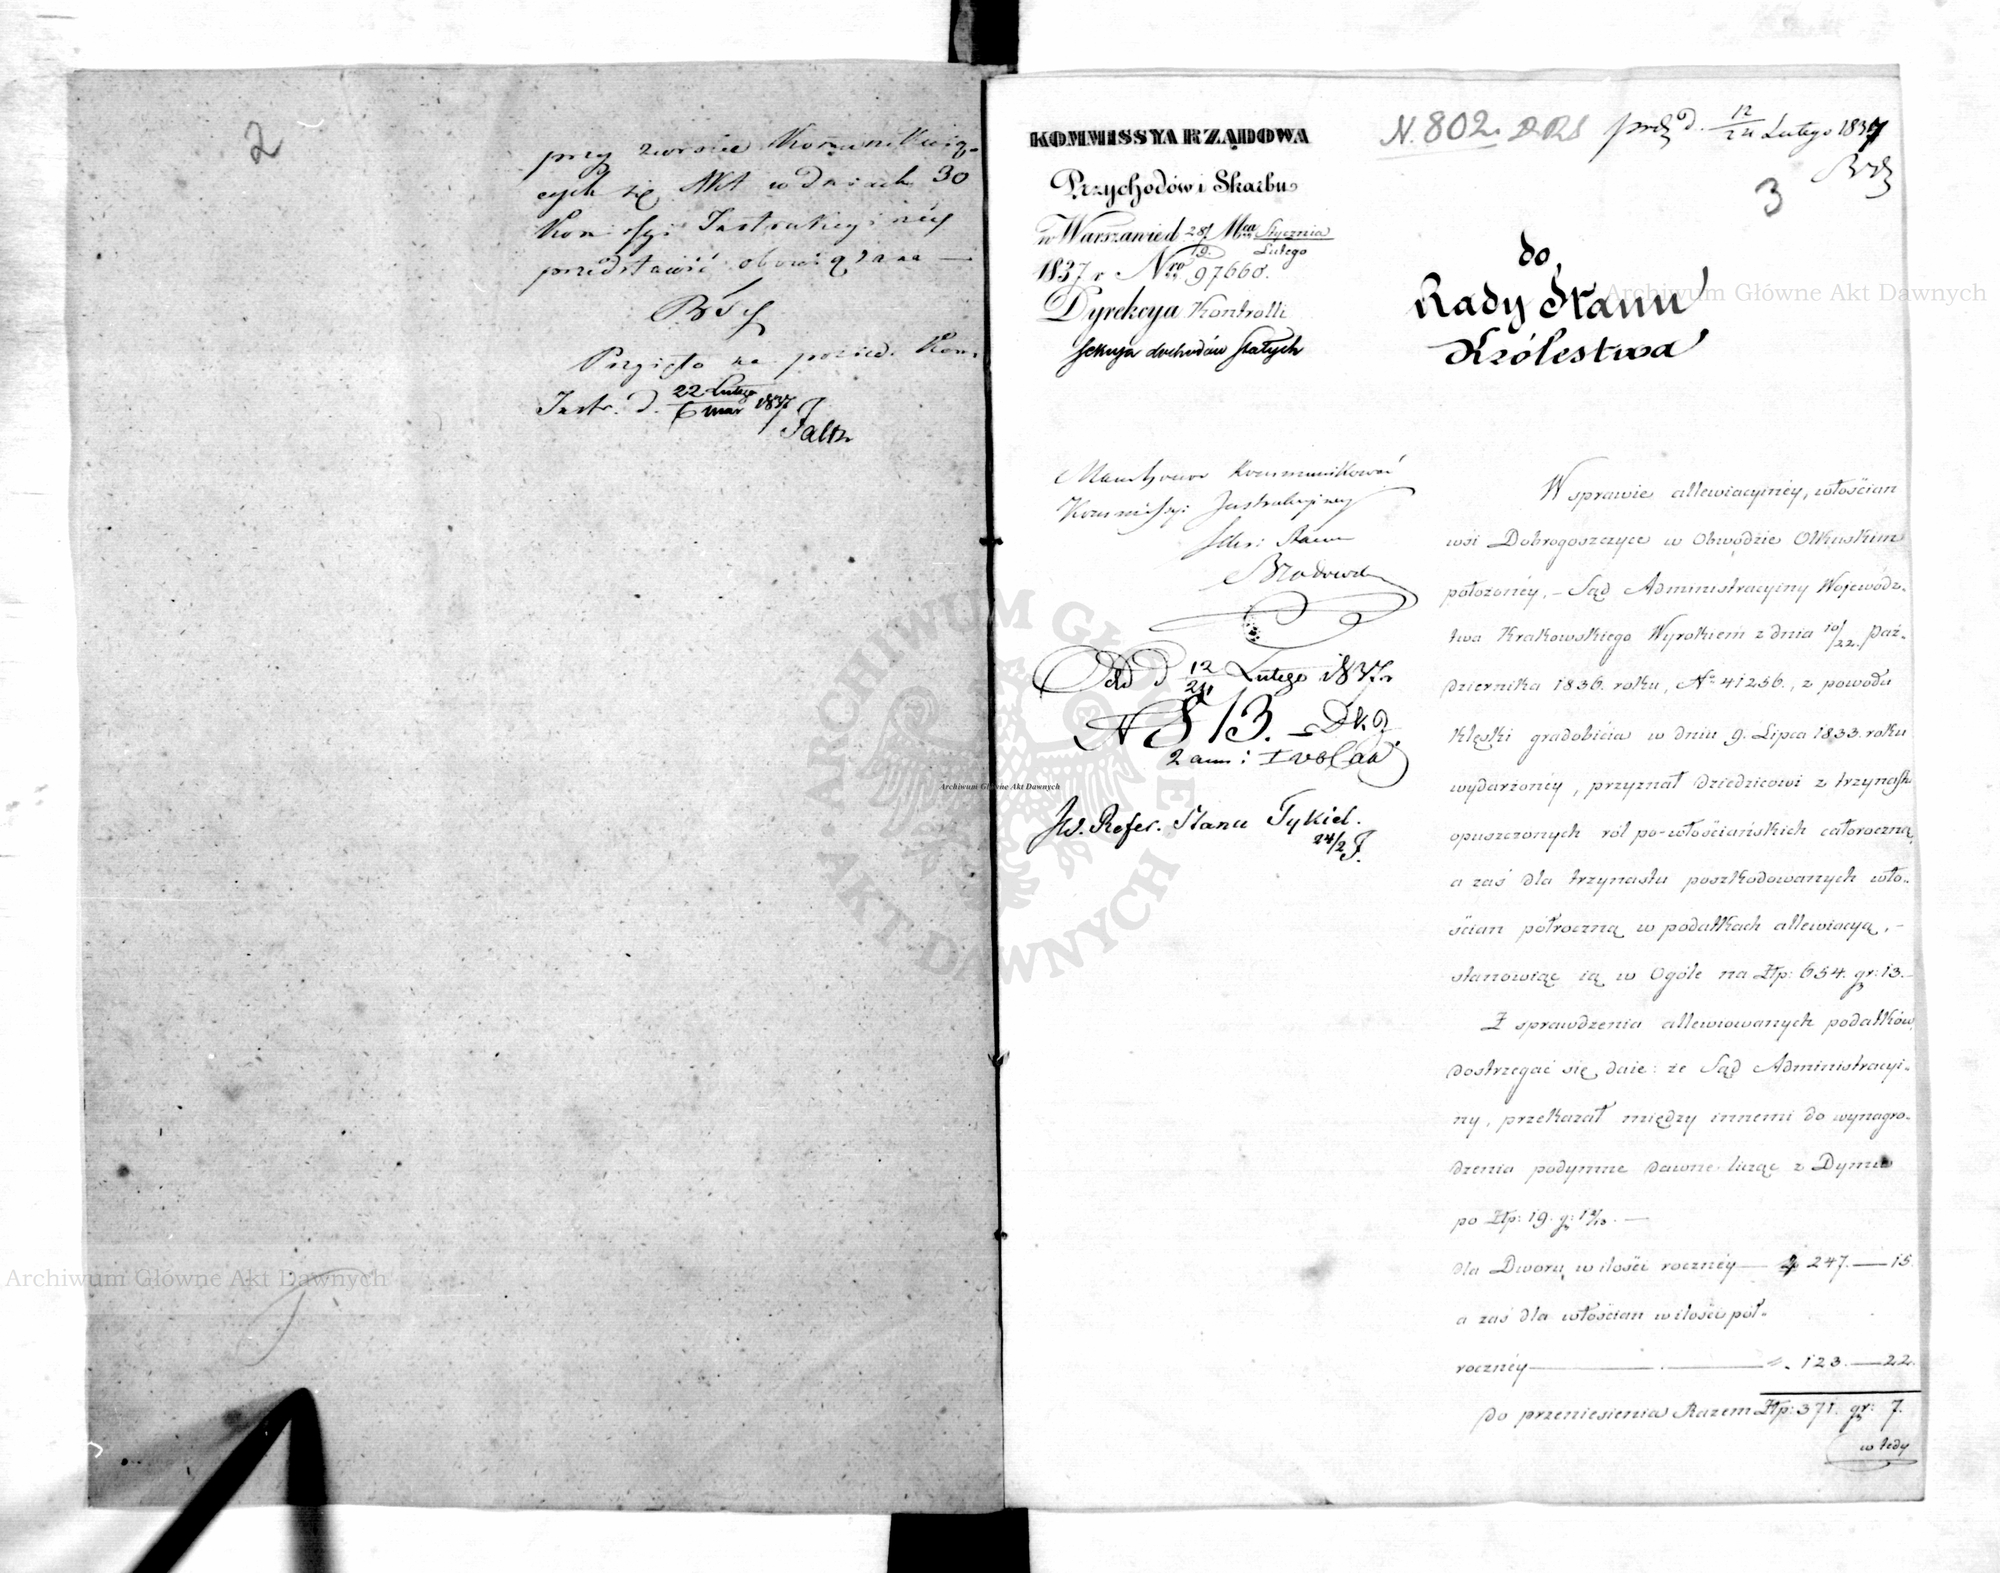 2
przy zwrocie komunikuią-
cych się Akt w dniach 30
Kommissyi Instrukcyinéy
przedstawić obowiązana —
Przyięto na posied. Kom.
Instr. d. 22 Lutego / 6 mar 1837
KOMMISSYA RZĄDOWA
Przychodów i Skarbu
w Warszawie d. 28 Mca Stycznia / 9 Lutego
1837 r. Nro 97660.
Dyrekcya Kontrolli
Sekcya dochodów stałych
N. 802. prez d. 12/24 Lutego 1837
3
do
Rady Stanu
Królestwa
Mam honor kommunikować
Kommissyi Instrukcyiney
Sekr: Stanu
Odd d 12/24 Lutego 1837 r
N 813.
2 ann: I vol.
JW. Refer. Stanu Tykiel.
24/2
W sprawie allewiacyinéy, włościan
wsi Dobrogoszczyce w Obwodzie Olkuskim
położonéy, – Sąd Administracyiny Wojewódz-
twa Krakowskiego Wyrokiem z dnia 10/22. Paź-
dziernika 1836. roku, No 41256., z powodu
klęski gradobicia w dniu 9. Lipca 1833. roku
wydarzonéy, przyznał dziedzicowi z trzynastu
opuszczonych ról po-włościańskich całoroczną,
a zaś dla trzynastu poszkodowanych wło-
ścian półroczną w podatkach allewiacyą, –
stanowiąc ią w Ogóle na Złp: 654. gr: 13. –
Z sprawdzenia allewiowanych podatków,
dostrzegać się daie: że Sąd Administracyi-
ny, przekazał między innemi do wynagro-
dzenia podymne dawne licząc z Dymu
po Złp: 19. gr: 1 2/13. —
dla Dworu w ilości rocznéy — 247. — 15.
a zaś dla włościan w ilości pół-
rocznéy — 123. — 22.
do przeniesienia Razem Złp: 371. gr: 7.
wtedy
Archiwum Główne Akt Dawnych
Archiwum Główne Akt Dawnych
Archiwum Główne Akt Dawnych
ARCHIWUM GŁÓWNE AKT DAWNYCH